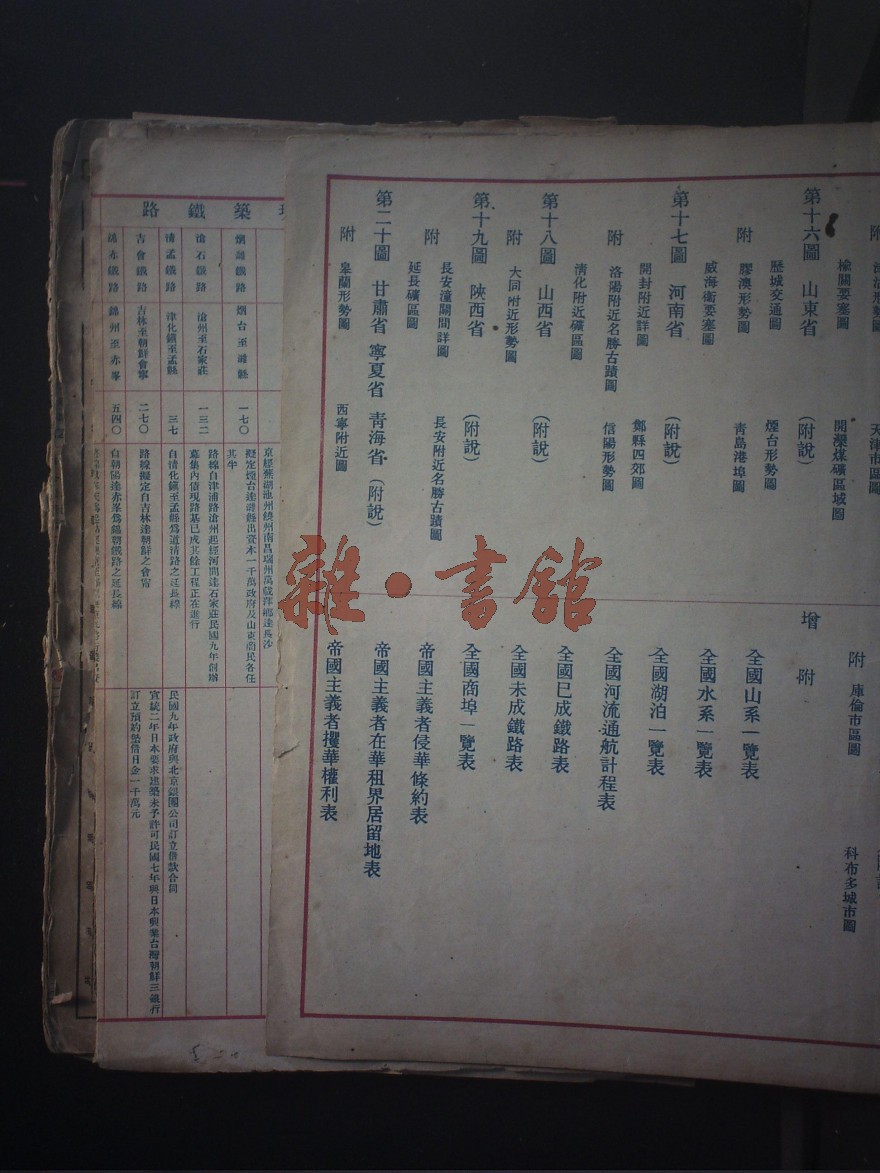 榆關要塞圖
開灤煤礦區域圖
第十六圖 山東省 (附說)
歷城交通圖
煙台形勢圖
附 膠澳形勢圖
青島港埠圖
威海衞要塞圖
第十七圖 河南省 (附說)
開封附近詳圖
鄭縣四郊圖
附 洛陽附近名勝古蹟圖
信陽形勢圖
淸化附近礦區圖
第十八圖 山西省 (附說)
附 大同附近形勢圖
第十九圖 陝西省 (附說)
附 長安潼關間詳圖
長安附近名勝古蹟圖
延長礦區圖
第二十圖 甘肅省 寧夏省 靑海省 (附說)
附 皋蘭形勢圖
西寧附近圖
附 庫倫市區圖
科布多城市圖
增附
全國山系一覽表
全國水系一覽表
全國湖泊一覽表
全國河流通航計程表
全國已成鐵路表
全國未成鐵路表
全國商埠一覽表
帝國主義者侵華條約表
帝國主義者在華租界居留地表
帝國主義者攫華權利表
築鐵路
京經蕪湖池州饒州南昌瑞州萬載萍鄉達長沙
烟濰鐵路
烟台至濰縣
一七〇
擬定煙台達濰縣出資本一千萬政府及山東商民各任其半
滄石鐵路
滄州至石家莊
一三二
路線自津浦路滄州起經河間達石家莊民國九年創辦募集內債現路基已成其餘工程正在進行
淸孟鐵路
淸化鎭至孟縣
三七
自淸化鎭至孟縣爲道淸路之延長線
民國九年政府與北京銀團公司訂立借款合同
吉會鐵路
吉林至朝鮮會寧
二七〇
路線擬定自吉林達朝鮮之會甯
宣統二年日本要求建築未予許可民國七年與日本興業台灣朝鮮三銀行訂立預約墊借日金一千萬元
錦赤鐵路
錦州至赤峯
五四〇
自朝陽達赤峯爲錦朝鐵路之延長線
雜·書館